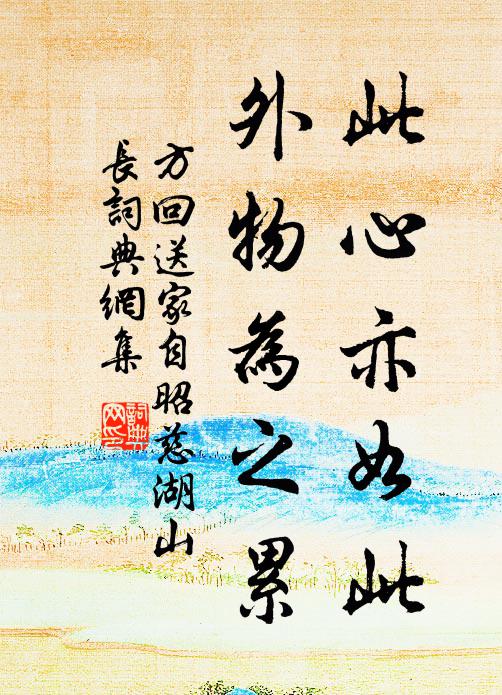 此心亦如此
外物為之累
方回送家自昭慈湖山
長詞典網集
詞典網印